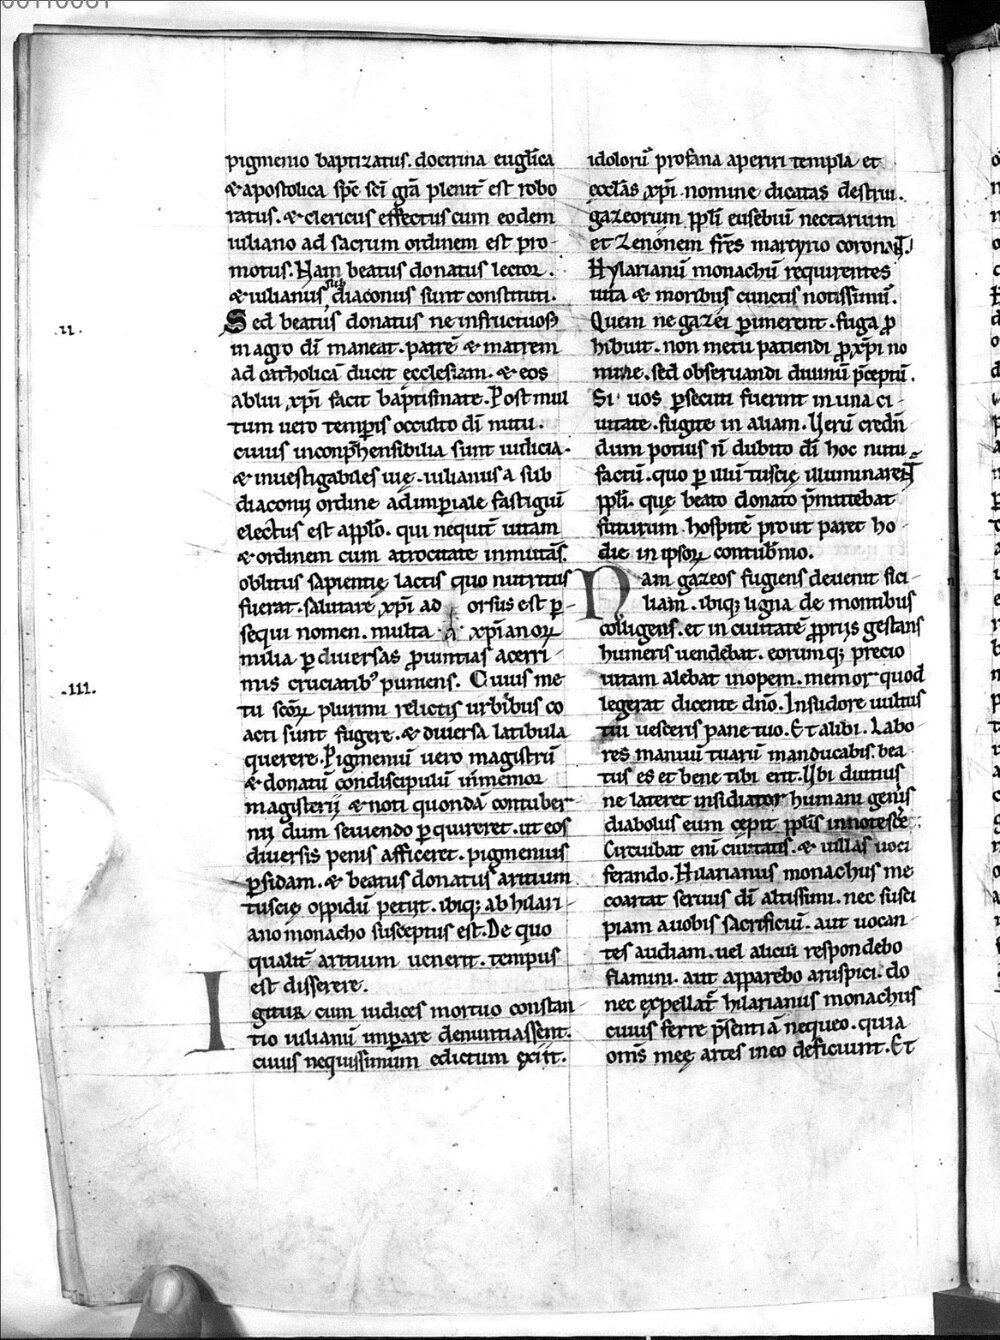 00110081
pigmenio baptizatus. doctrina euglĩca
& apostolica spc̄ scī grā plenit᷑ est robo
ratus. & clericus effectus cum eodem
iuliano ad sacrum ordinem est pro-
motus. Nam beatus donatus lector.
& iulianus sub diaconus sunt constituti.
.II.
Sed beatus donatus ne infructuosꝰ
in agro dī maneat. patrē & matrem
ad catholicā ducit ecclesiam. & eos
ablui xp̄i facit baptismate. Post mul
tum uero temp̄is occulto dī nutu.
cuius inconp̄hensibilia sunt iudicia.
& inuestigabiles uię. iulianus a sub
diaconij ordine ad imꝑiale fastigiū
electus est ap̄plo. qui nequit᷑ uitam
& ordinem cum atrocitate inmutās.
oblitus sapientię lactis quo nutritus
fuerat. salutare xp̄i ad orsus est ꝑ-
sequi nomen. multa xp̄ianoꝝ
milia ꝑ diuersas ꝓuintias acerri-
.III.
mis cruciatibꝰ puniens. Cuius me
tu scōꝝ plurimi relictis urbibus co
acti sunt fugere. & diuersa latibula
querere. Pigmeniū uero magistrū
& donatū condiscipulū inmemor
magisterij & noti quondā contuber-
nij dum seuiendo ꝑquireret. ut eos
diuersis penis afficeret. pigmenius
ꝑsidam. & beatus donatus aritium
tuscię oppidū petijt. ibiq; ab hilari-
ano monacho susceptus est. De quo
qualit᷑ aritium uenerit. tempus
est disserere.
Igitur cum iudices mortuo constan-
tio iulianū imꝑare denuntiassent.
cuius nequissimum edictum exiit.
idolorū profana aperiri templa et
ecclās xp̄i nomine dicatas destrui.
gazeorum pp̄li eusebiū nectarium
et Zenonem frēs martyrio coronat᷑.
Hylarianū monachū requirentes
uita & moribus cunctis notissimū.
Quem ne gazei ꝑimerent. fuga ꝓ
hibuit. non metu patiendi ꝓ xp̄i no
mine. sed obseruandi diuinū p̄ceptū.
Si uos ꝑsecuti fuerint in una ci-
uitate. fugite in aliam. Uerū credn̄
dum potius n̄ dubito dī hoc nutu
factū. quo ꝑ illū tuscię illuminarent᷑
pp̄li. quę beato donato p̄mittebat
futurum hospitē prout patet ho-
die in ipsoꝝ contub̄nio.
Nam gazeos fugiens deuenit sici-
liam. ibiq; ligna de montibus
colligens. et in ciuitatē ꝓprijs gestans
humeris uendebat. eorumq; precio
uitam alebat inopem. memor quod
legerat dicente dn̄o. In sudore uultus
tui uesceris pane tuo. Et alibi. Labo
res manuū tuarū manducabis. bea
tus es et bene tibi erit. Ubi diutius
ne lateret insidiator humani genīs
diabolus eum cepit pp̄lis innotesce᷑
Circuibat enī ciuitates. & uillas uoci
ferando. Hilarianus monachus me
coartat seruus dī altissimi. nec susci
piam a uobis sacrificiū. aut uocan-
tes audiam. uel alicui respondebo
flamini. aut apparebo aruspici. do
nec expellat᷑ hilarianus monachus
cuius ferre p̄sentiā nequeo. quia
om̄s meę artes in eo deficiunt. Et